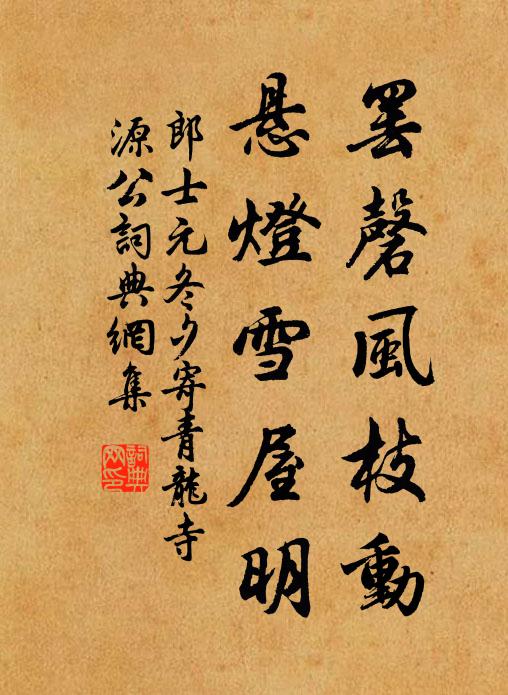 罢磬風枝動
悬燈雪屋明
郎士元冬夕寄青龍寺
源公詞典網集
詞典
网印